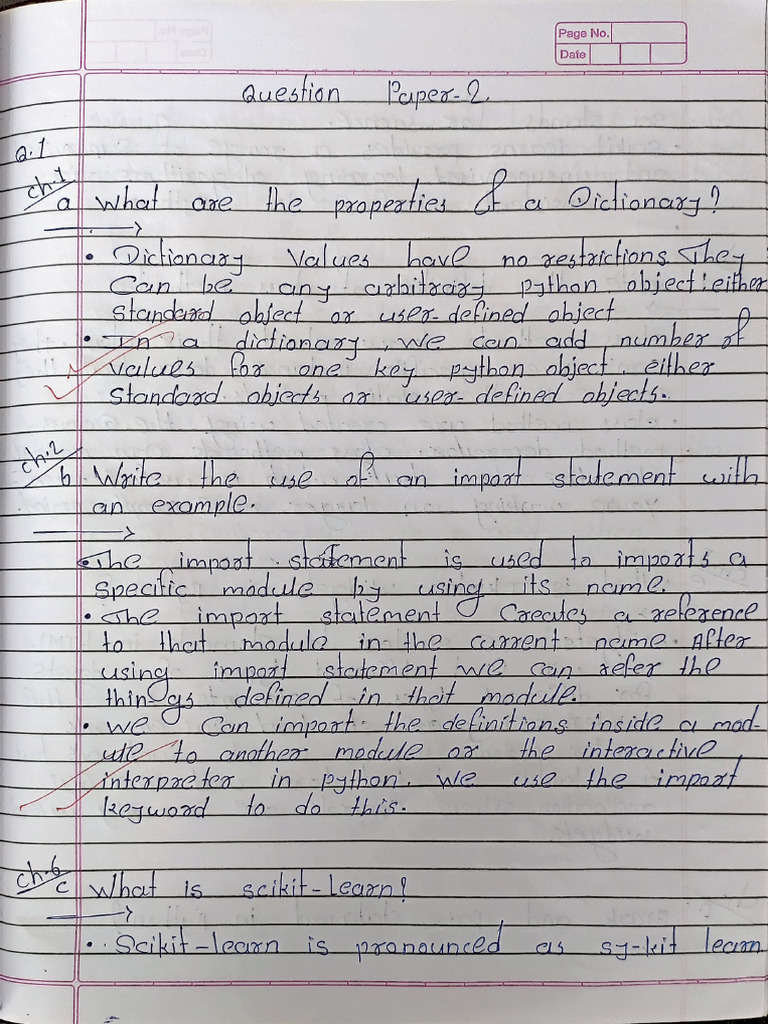 Page No.
Date
Question Paper-2.
Q.1
ch.1
a What are the properties of a Dictionary?
• Dictionary values have no restrictions. They
can be any arbitrary python object: either
standard object or user-defined object
• In a dictionary, we can add number of
values for one key python object. either
standard objects or user-defined objects.
ch.2
b. Write the use of an import statement with
an example.
• The import statement is used to imports a
specific module by using its name.
• The import statement creates a reference
to that module in the current name. After
using import statement we can refer the
things defined in that module.
• we can import the definitions inside a mod-
ule to another module or the interactive
interpreter in python. we use the import
keyword to do this.
ch.6
c What is scikit-learn?
• Scikit-learn is pronounced as sy-kit learn